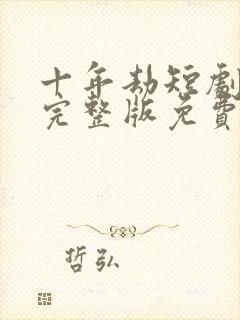 十年劫短劇
完整版免費
哲弘